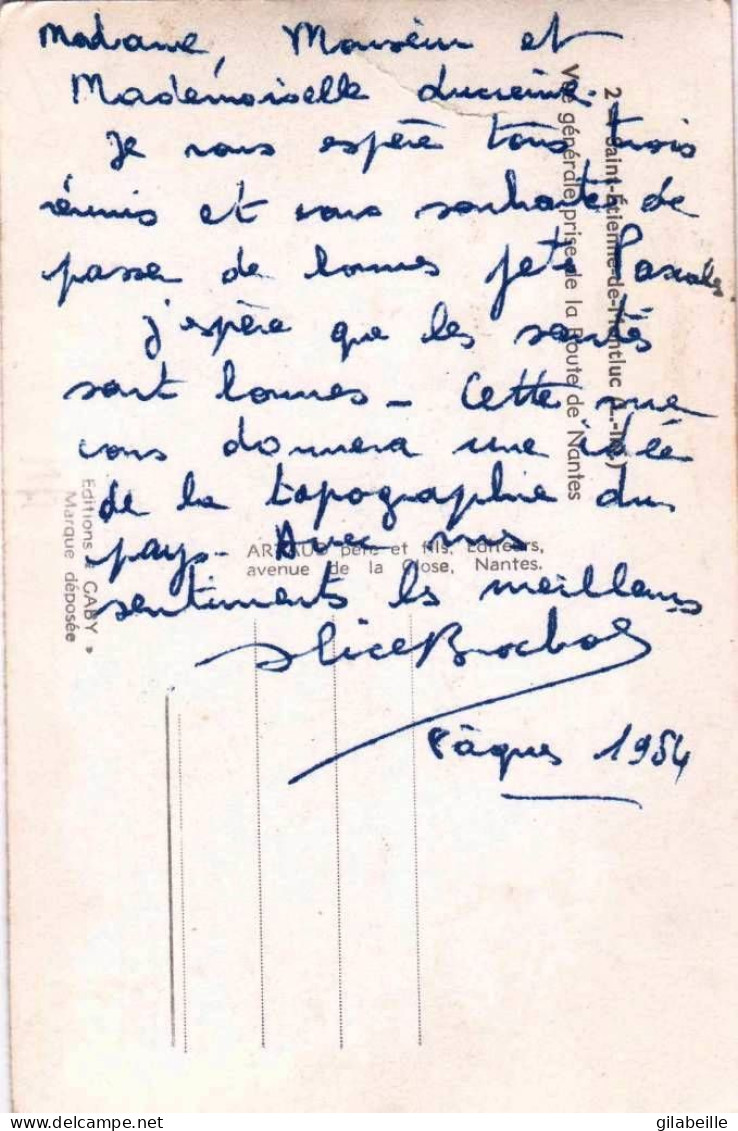 Madame, Monsieur et
Mademoiselle
Je vous espère tous trois
réunis et vous souhaite de
passer de bonnes fêtes Pascales.
J'espère que les santés
sont bonnes - Cette vue
vous donnera une idée
de la topographie du
pays - Avec mes
sentiments les meilleurs
Alice
Pâques 1954
2 - Saint-Étienne-de-Montluc (L.-Inf.)
Vue générale prise de la Route de Nantes
ARTAUD père et fils, Éditeurs,
avenue de la Close, Nantes.
Editions « GABY »
Marque déposée
delcampe.net
gilabeille